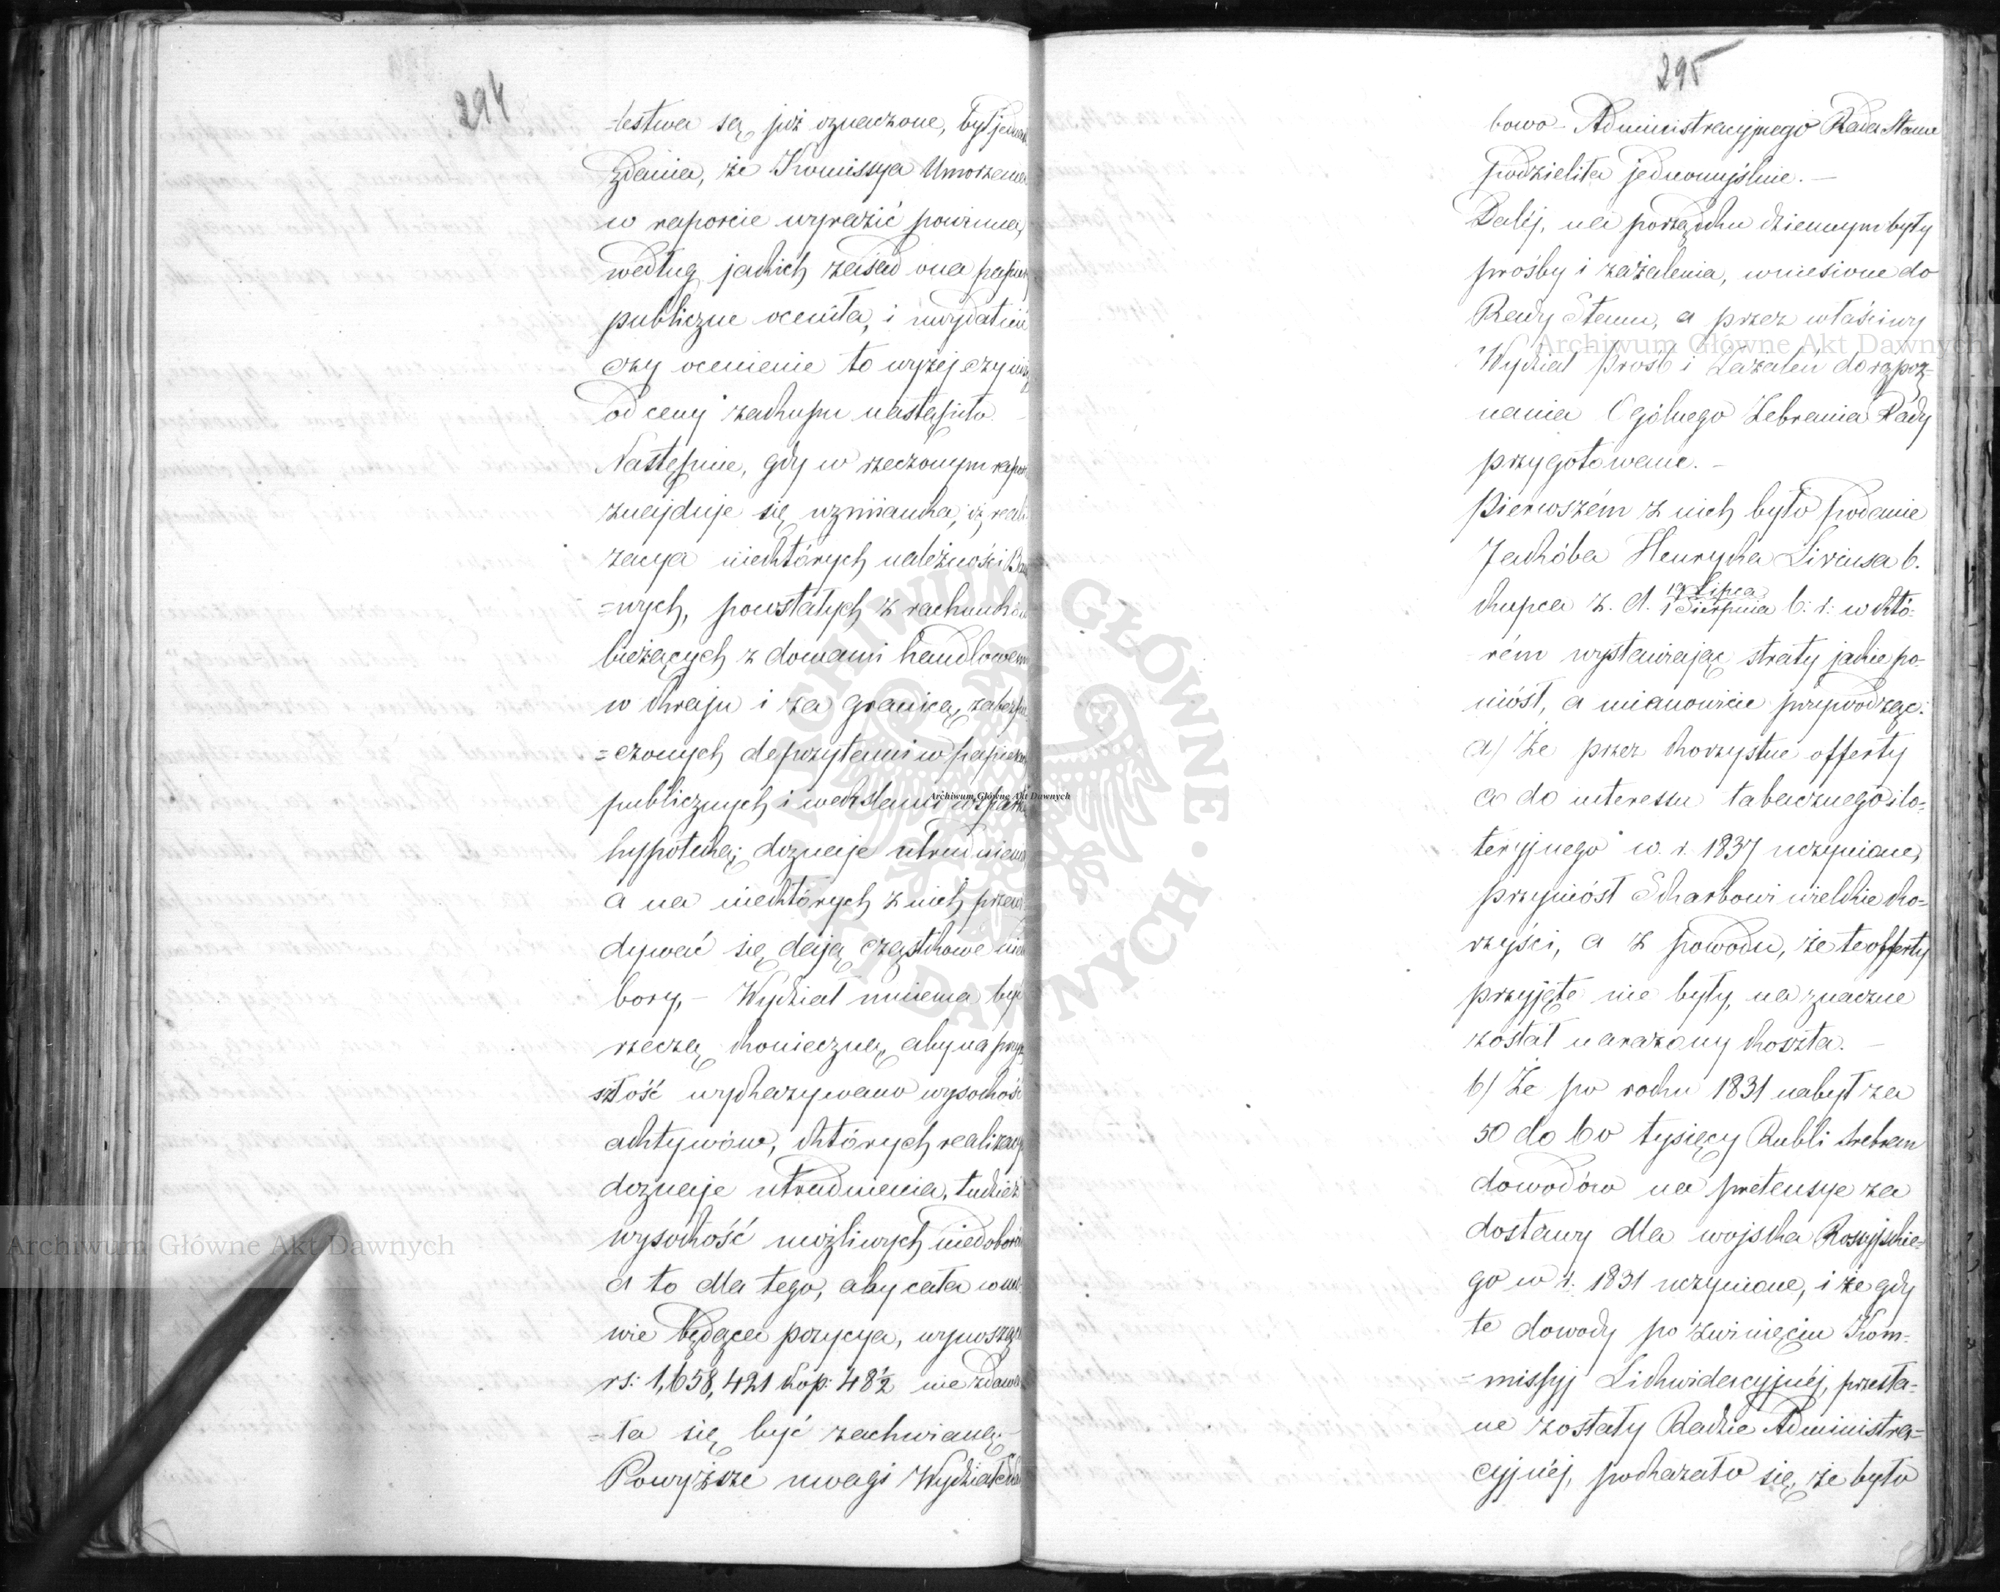 294
=lestwa są już oznaczone, był jednak
zdania, że Kommissya Umorzenia
w raporcie wyrazić powinna,
według jakich zasad ona papiery
publiczne oceniła, i uwydatnić
czy ocenienie to wyżej czy niżej
od ceny zakupu nastąpiło. —
Następnie, gdy w rzeczonym rapor
znajduje się wzmianka, iż reali
zacya niektórych należności Ban
=wych, powstałych z rachunków
bieżących z domami handlowemi
w kraju i za granicą, zabezpie
=czonych depozytami w papierach
publicznych i wexlami wspartych
hypoteką; doznaje utrudnienia
a na niektórych z nich, przewi
dywać się dają cząstkowe niedo
bory, — Wydział mniema być
rzeczą konieczną, aby na przy
szłość wykazywano wysokość
aktywów, których realizacya
doznaje utrudnienia, tudzież
wysokość możliwych niedoborów
a to dla tego, aby cała w mo
wie będąca pozycya, wynosząca
rs: 1,658,421 kop: 48½ nie zdawa
=ła się być zachwianą.—
Powyższe uwagi Wydziału Skar
295
bowo-Administracyjnego Rada Stanu
podzieliła jednomyślnie. —
Daléj, na porządku dziennym były
prośby i zażalenia, wniesione do
Rady Stanu, a przez właściwy
Wydział Próśb i Zażaleń do rozpoz-
nania Ogólnego Zebrania Rady
przygotowane. —
Pierwszém z nich było podanie
Jakóba Henryka Liviusa b.
kupca z d. 19 Lipca
1 Sierpnia b: r: w któ-
rém wystawiając straty jakie po-
niósł, a mianowicie przywodząc:
a) Że przez korzystne offerty
co do interessu tabacznego i lo-
teryjnego w r. 1837 uczynione,
przyniósł Skarbowi wielkie ko-
rzyści, a z powodu, że te offerty
przyjęte nie były, na znaczne
został narażony koszta. —
b) Że po roku 1831 nabył za
50 do 60 tysięcy Rubli srebrem
dowodów na pretensye za
dostawy dla wojska Rossyjskie-
go w r: 1831 uczynione, i że gdy
te dowody po zwinięciu Kom-
=missyj Likwidacyjnéj, przesła-
ne zostały Radzie Administra-
cyjnéj, pokazało się, że było
Archiwum Główne Akt Dawnych
Archiwum Główne Akt Dawnych
Archiwum Główne Akt Dawnych
ARCHIWUM GŁÓWNE AKT DAWNYCH